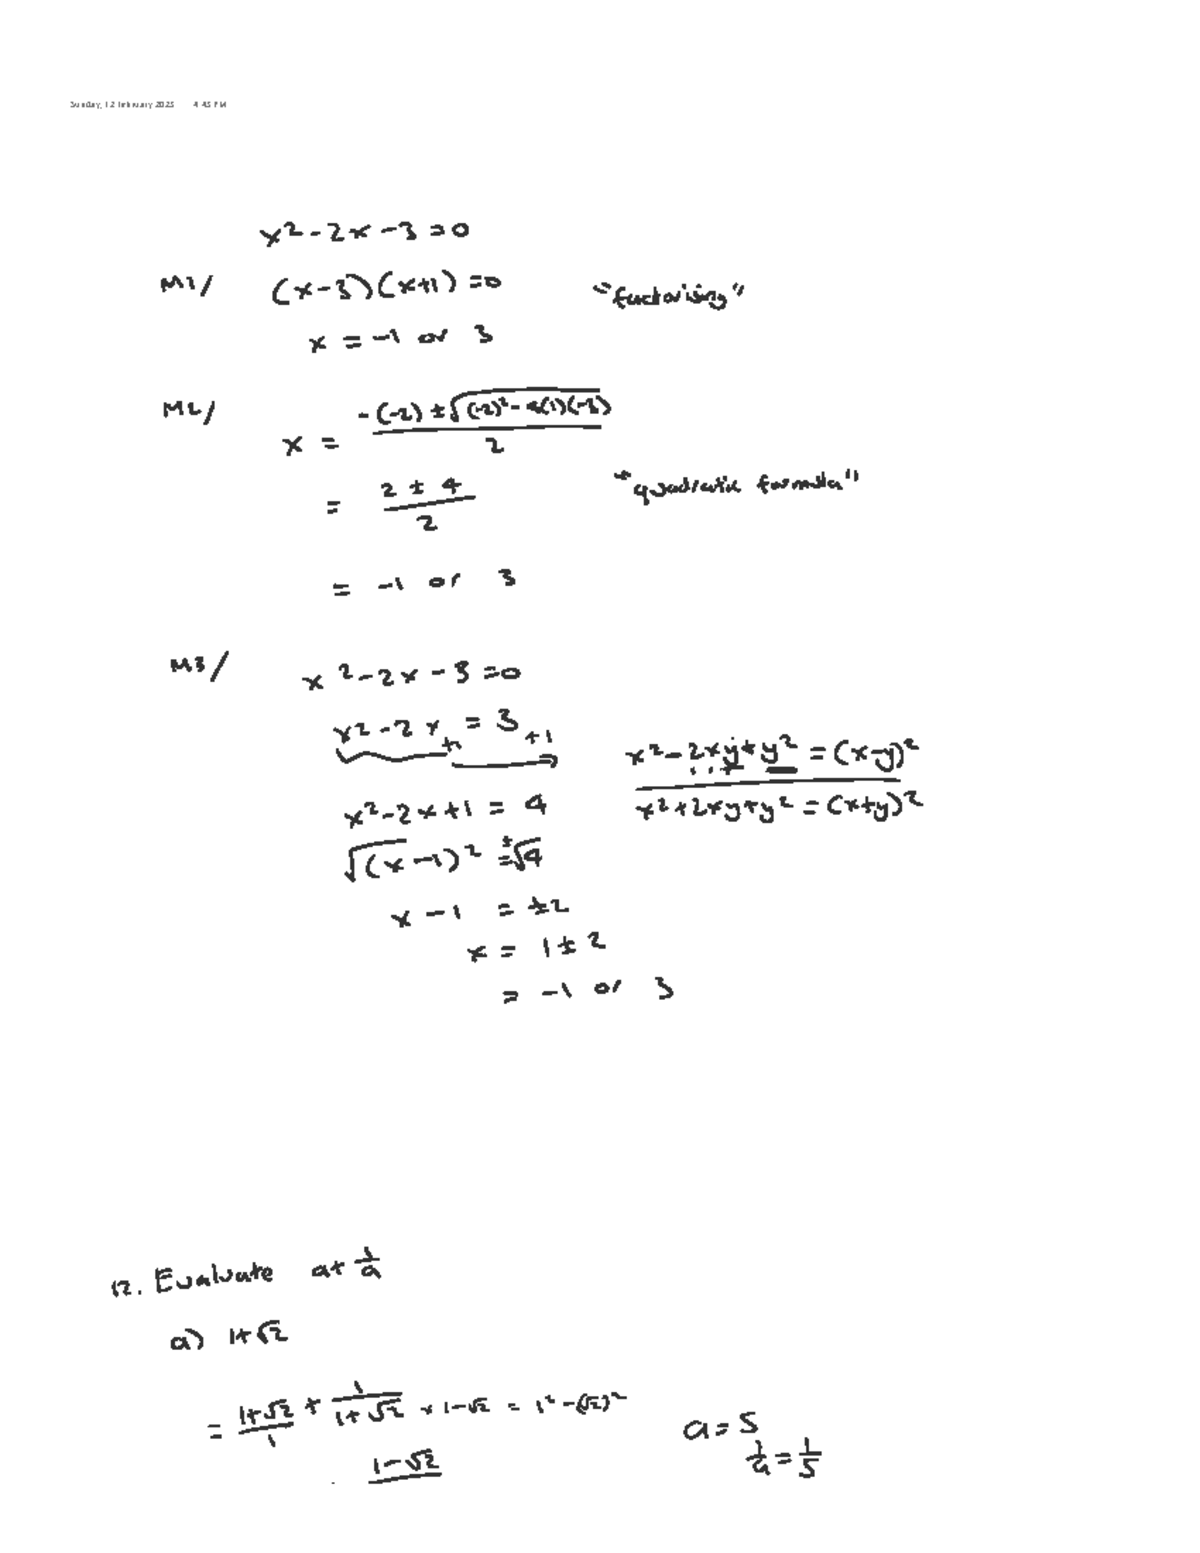 Sunday, 12 February 2023 4:45 PM
x² - 2x - 3 = 0
M1/ (x-3)(x+1) = 0 "factorising"
x = -1 or 3
M2/ x = (-(-2) ± √((-2)² - 4(1)(-3))) / 2
= (2 ± 4) / 2 "quadratic formula"
= -1 or 3
M3/ x² - 2x - 3 = 0
x² - 2x +1 = 3 +1
x² - 2xy + y² = (x-y)²
x² + 2xy + y² = (x+y)²
x² - 2x + 1 = 4
√(x-1)² = ±√4
x - 1 = ±2
x = 1 ± 2
= -1 or 3
12. Evaluate a + 1/a
a) 1+√2
= (1+√2)/1 + 1/(1+√2) × 1-√2 = 1² - (√2)²
1-√2
a = 5
1/a = 1/5